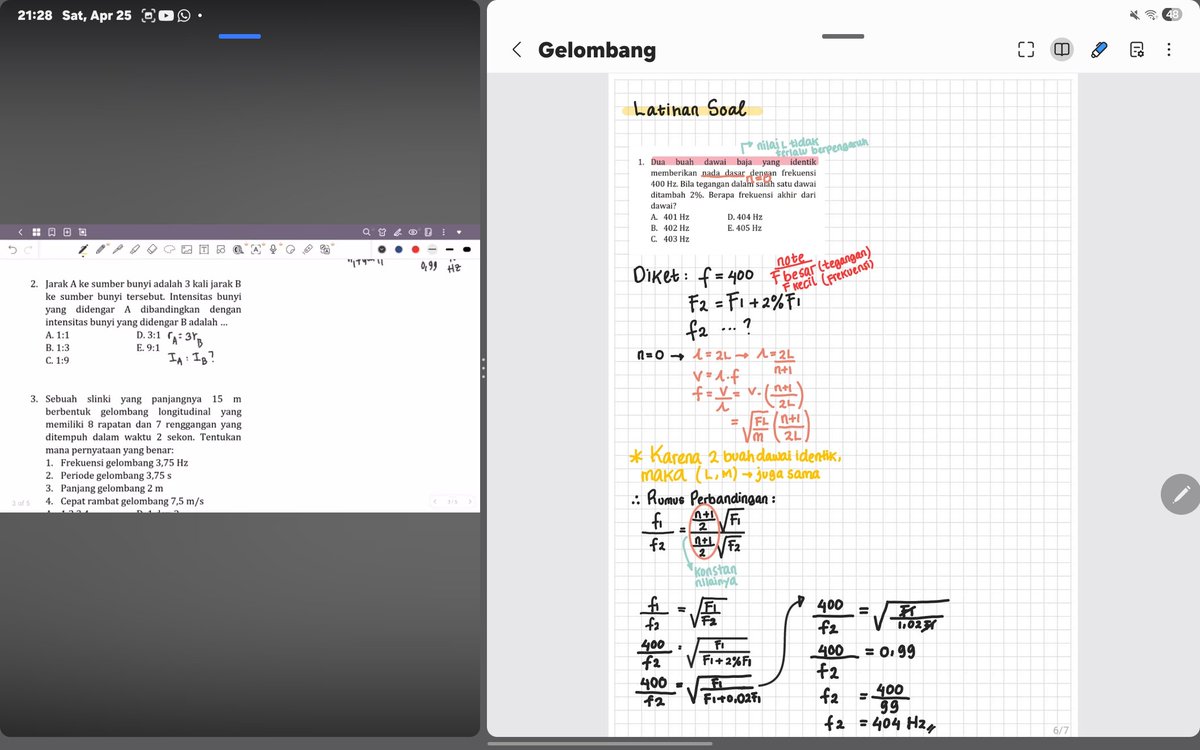 21:28 Sat, Apr 25
48
Gelombang
0,99 Hz
2. Jarak A ke sumber bunyi adalah 3 kali jarak B
ke sumber bunyi tersebut. Intensitas bunyi
yang didengar A dibandingkan dengan
intensitas bunyi yang didengar B adalah ...
A. 1:1 D. 3:1
B. 1:3 E. 9:1
C. 1:9
rA = 3rB
IA : IB?
3. Sebuah slinki yang panjangnya 15 m
berbentuk gelombang longitudinal yang
memiliki 8 rapatan dan 7 renggangan yang
ditempuh dalam waktu 2 sekon. Tentukan
mana pernyataan yang benar:
1. Frekuensi gelombang 3,75 Hz
2. Periode gelombang 3,75 s
3. Panjang gelombang 2 m
4. Cepat rambat gelombang 7,5 m/s
2 of 5
1/5
Latihan Soal
nilai L tidak
terlalu berpengaruh
1. Dua buah dawai baja yang identik
memberikan nada dasar dengan frekuensi
n=0
400 Hz. Bila tegangan dalam salah satu dawai
ditambah 2%. Berapa frekuensi akhir dari
dawai?
A. 401 Hz D. 404 Hz
B. 402 Hz E. 405 Hz
C. 403 Hz
note
F besar (tegangan)
F kecil (Frekuensi)
Diket : f = 400
F2 = F1 + 2% F1
f2 ... ?
n=0 → λ = 2L → λ = 2L
n+1
V = λ.f
f = V = V. (n+1)
λ 2L
= √FL (n+1)
m 2L
* Karena 2 buah dawai identik,
maka (L, M) → juga sama
∴ Rumus Perbandingan :
f1 = n+1 √F1
2
f2 n+1 √F2
2
Konstan
nilainya
f1 = √F1
f2 F2
400 = √F1
f2 F1 + 2% F1
400 = √F1
f2 F1+0,02F1
400 = √F1
f2 1,02F1
400 = 0,99
f2
f2 = 400
99
f2 = 404 Hz //
6/7